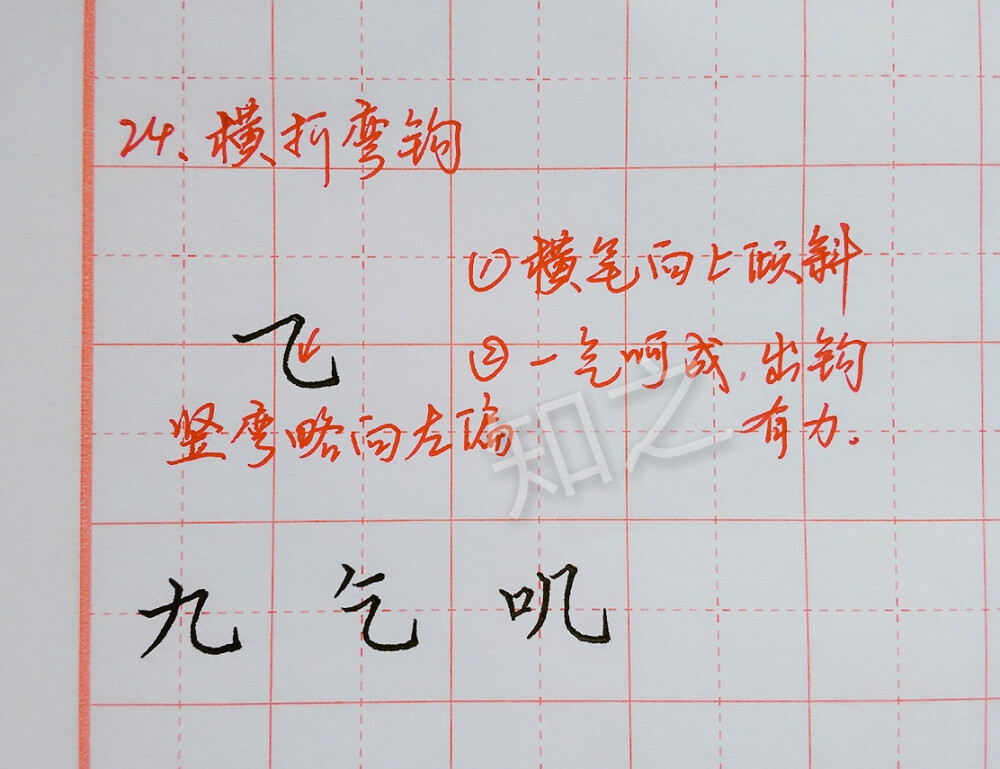 24.横折弯钩
①横笔向上倾斜
②一气呵成,出钩
有力.
竖弯略向左偏
九乞叽
知之